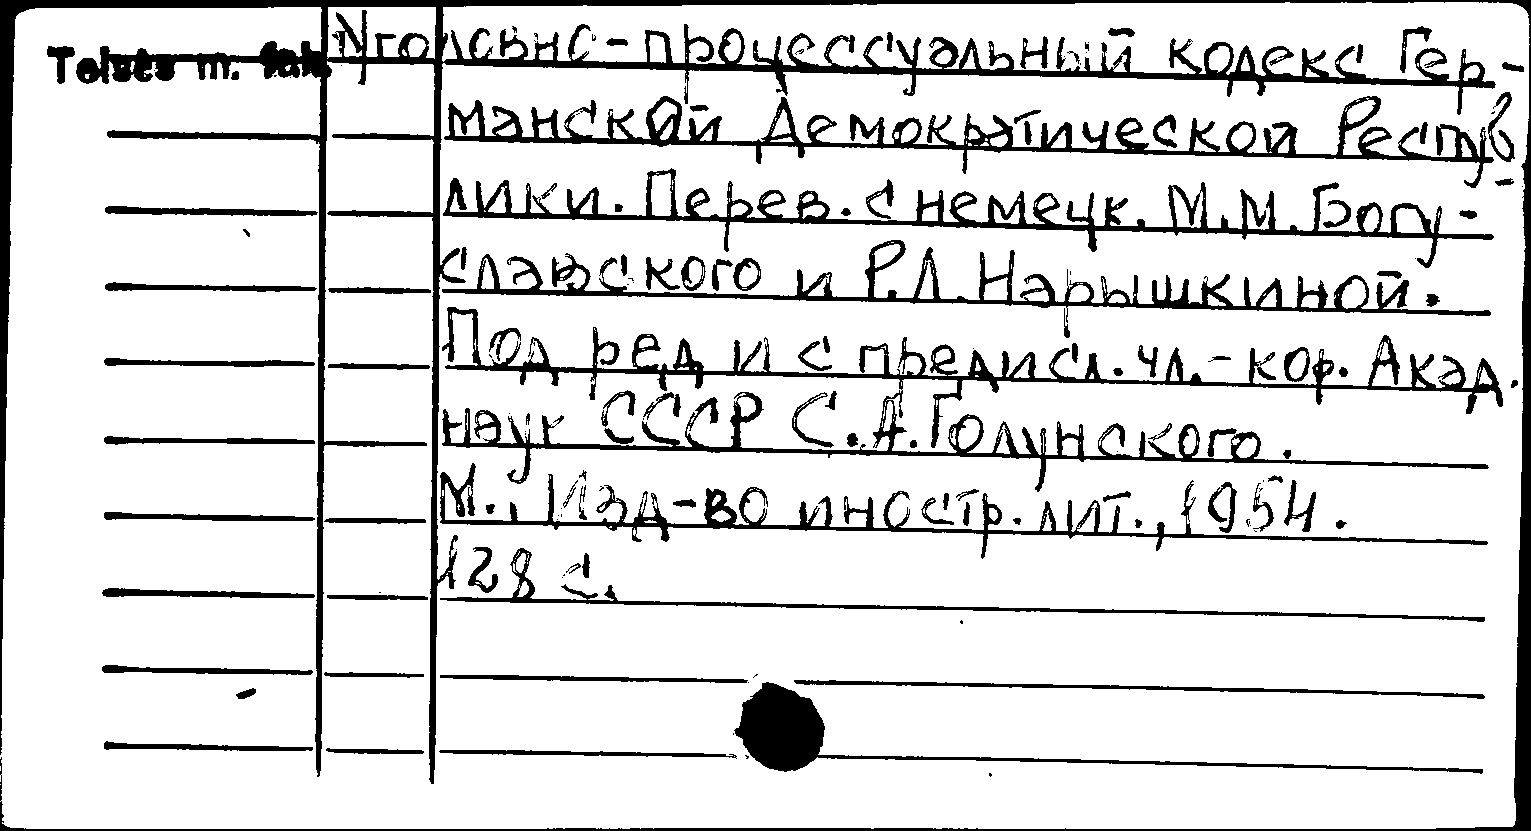 Teisės m. fak.
Уголовно-процессуальный кодекс Гер-
манской Демократической Респуб-
лики. Перев. с немецк. М.М. Богу-
славского и Р.Л. Нарышкиной.
Под ред и с предисл. чл.-кор. Акад.
наук СССР С.А. Голунского.
М., Изд-во иностр. лит., 1954.
128 с.